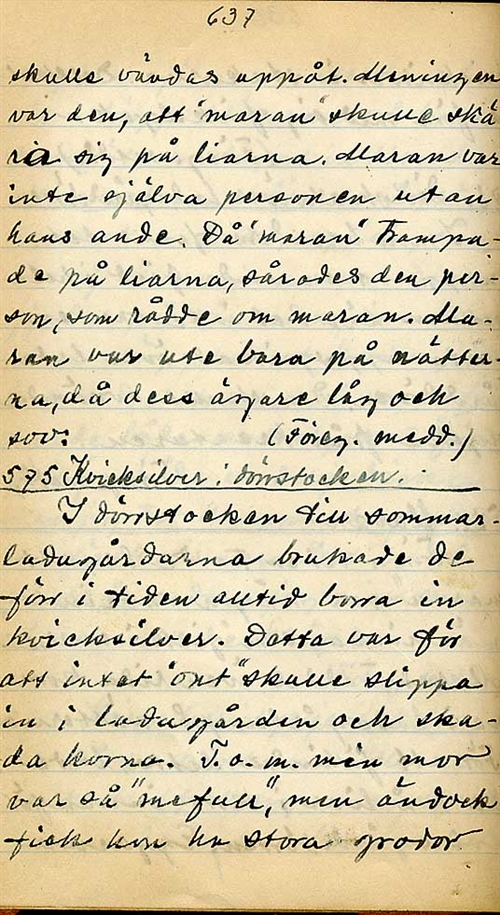 637
skulle vändas uppåt. Meningen
var den, att "maran" skulle skä
ra sig på liarna. Maran var
inte själva personen utan
hans ande. Då "maran" trampa-
de på liarna, sårades den per-
son, som rådde om maran. Ma-
ran var ute bara på nätter-
na, då dess ägare låg och
sov. (Föreg. medd.)
575 Kvicksilver i dörrstocken.
I dörrstocken till sommar-
ladugårdarna brukade de
förr i tiden alltid borra in
kvicksilver. Detta var för
att intet "ont" skulle slippa
in i ladugården och ska-
da korna. T.o.m. min mor
var så "mefull", men ändock
fick hon ha stora grodor